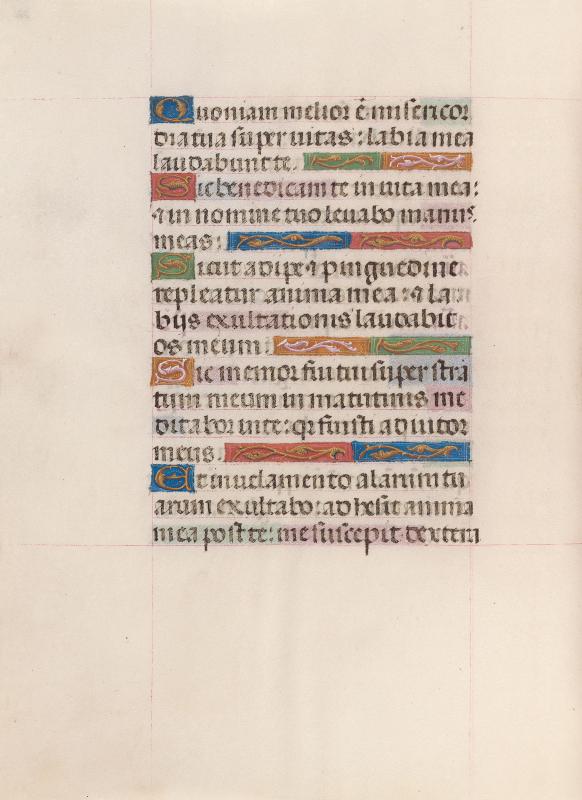 Quoniam melior ē misericor
dia tua super uitas: labia mea
laudabunt te.
Sic benedicam te in uita mea:
⁊ in nomine tuo leuabo manus
meas:
Sicut adipe ⁊ pinguedine
repleatur anima mea: ⁊ la
bijs exultationis laudabit
os meum:
Sic memor fui tui super stra
tum meum in matutinis me
ditabor in te: qr fuisti adiutor
meus.
Et in uelamento alarum tu
arum exultabo: adhesit anima
mea post te: me suscepit dextera